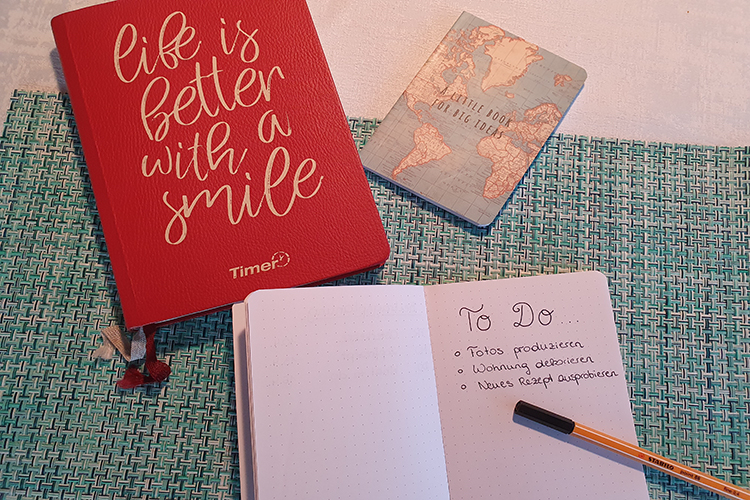 life is
better
with a
smile
Timer
A LITTLE BOOK
FOR BIG IDEAS
To Do...
Fotos produzieren
Wohnung dekorieren
Neues Rezept ausprobieren
STABILO